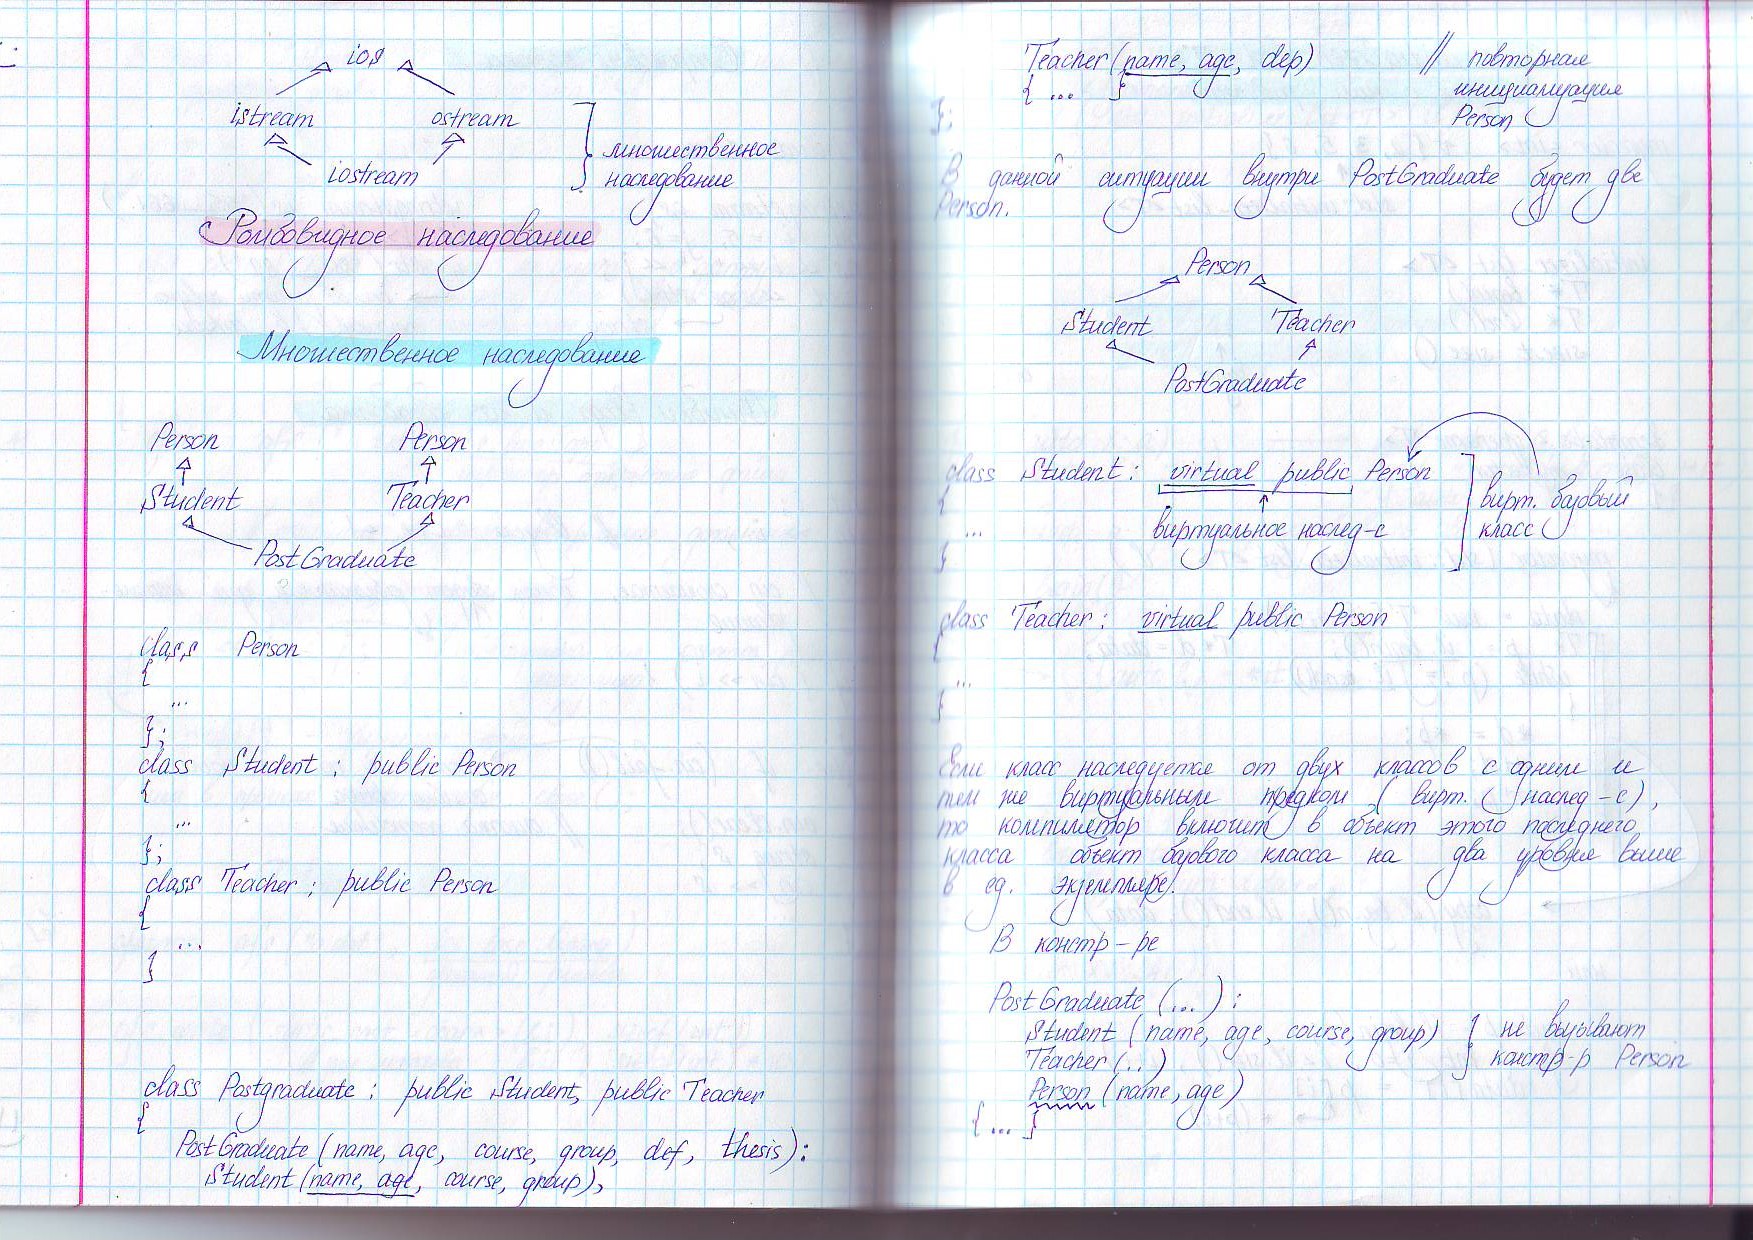 ios
istream ostream
iostream
множественное
наследование
Ромбовидное наследование
Множественное наследование
Person Person
Student Teacher
PostGraduate
class Person
{
...
};
class Student : public Person
{
...
};
class Teacher : public Person
{
...
}
class Postgraduate : public Student, public Teacher
{
PostGraduate (name, age, course, group, def, thesis):
Student (name, age, course, group),
Teacher (name, age, dep) // повторная
{ ... } инициализация
Person
};
В данной ситуации внутри PostGraduate будет две
Person.
Person
Student Teacher
PostGraduate
class Student : virtual public Person
{
вирт. базовый
класс
... виртуальное наслед-е
}
class Teacher : virtual public Person
{
...
}
Если класс наследуется от двух классов с одним и
тем же виртуальным предком (вирт. наслед-е),
то компилятор включит в объект этого последнего
класса объект базового класса на два уровня выше
в ед. экземпляре.
В констр-ре
PostGraduate (...) :
Student (name, age, course, group) не вызывают
Teacher (..) констр-р Person
Person (name, age)
{ ... }